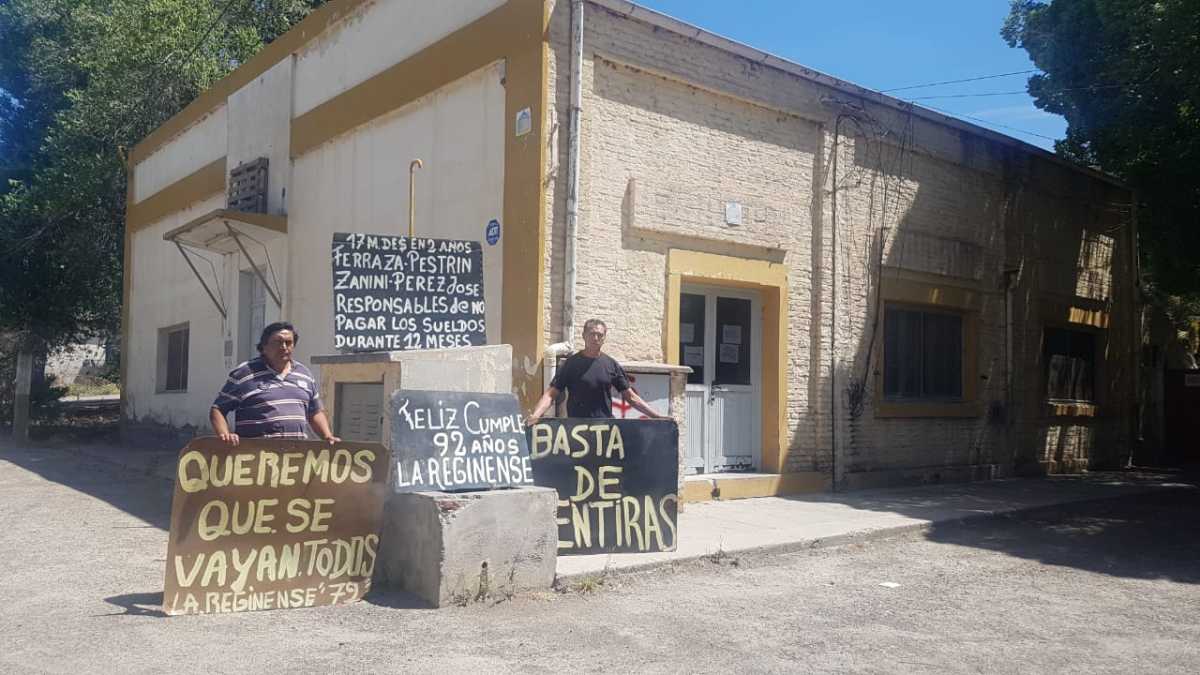 17 M. DE $ EN 2 AÑOS
FERRAZA - PESTRIN
ZANINI - PEREZ JOSE
RESPONSABLES d@ NO
PAGAR LOS SUELDOS
DURANTE 12 MESES
FELIZ CUMPLE
92 AÑOS
LA REGINENSE
QUEREMOS
QUE SE
VAYAN. TODOS
LA REGINENSE "79"
BASTA
DE
ENTIRAS
ADT